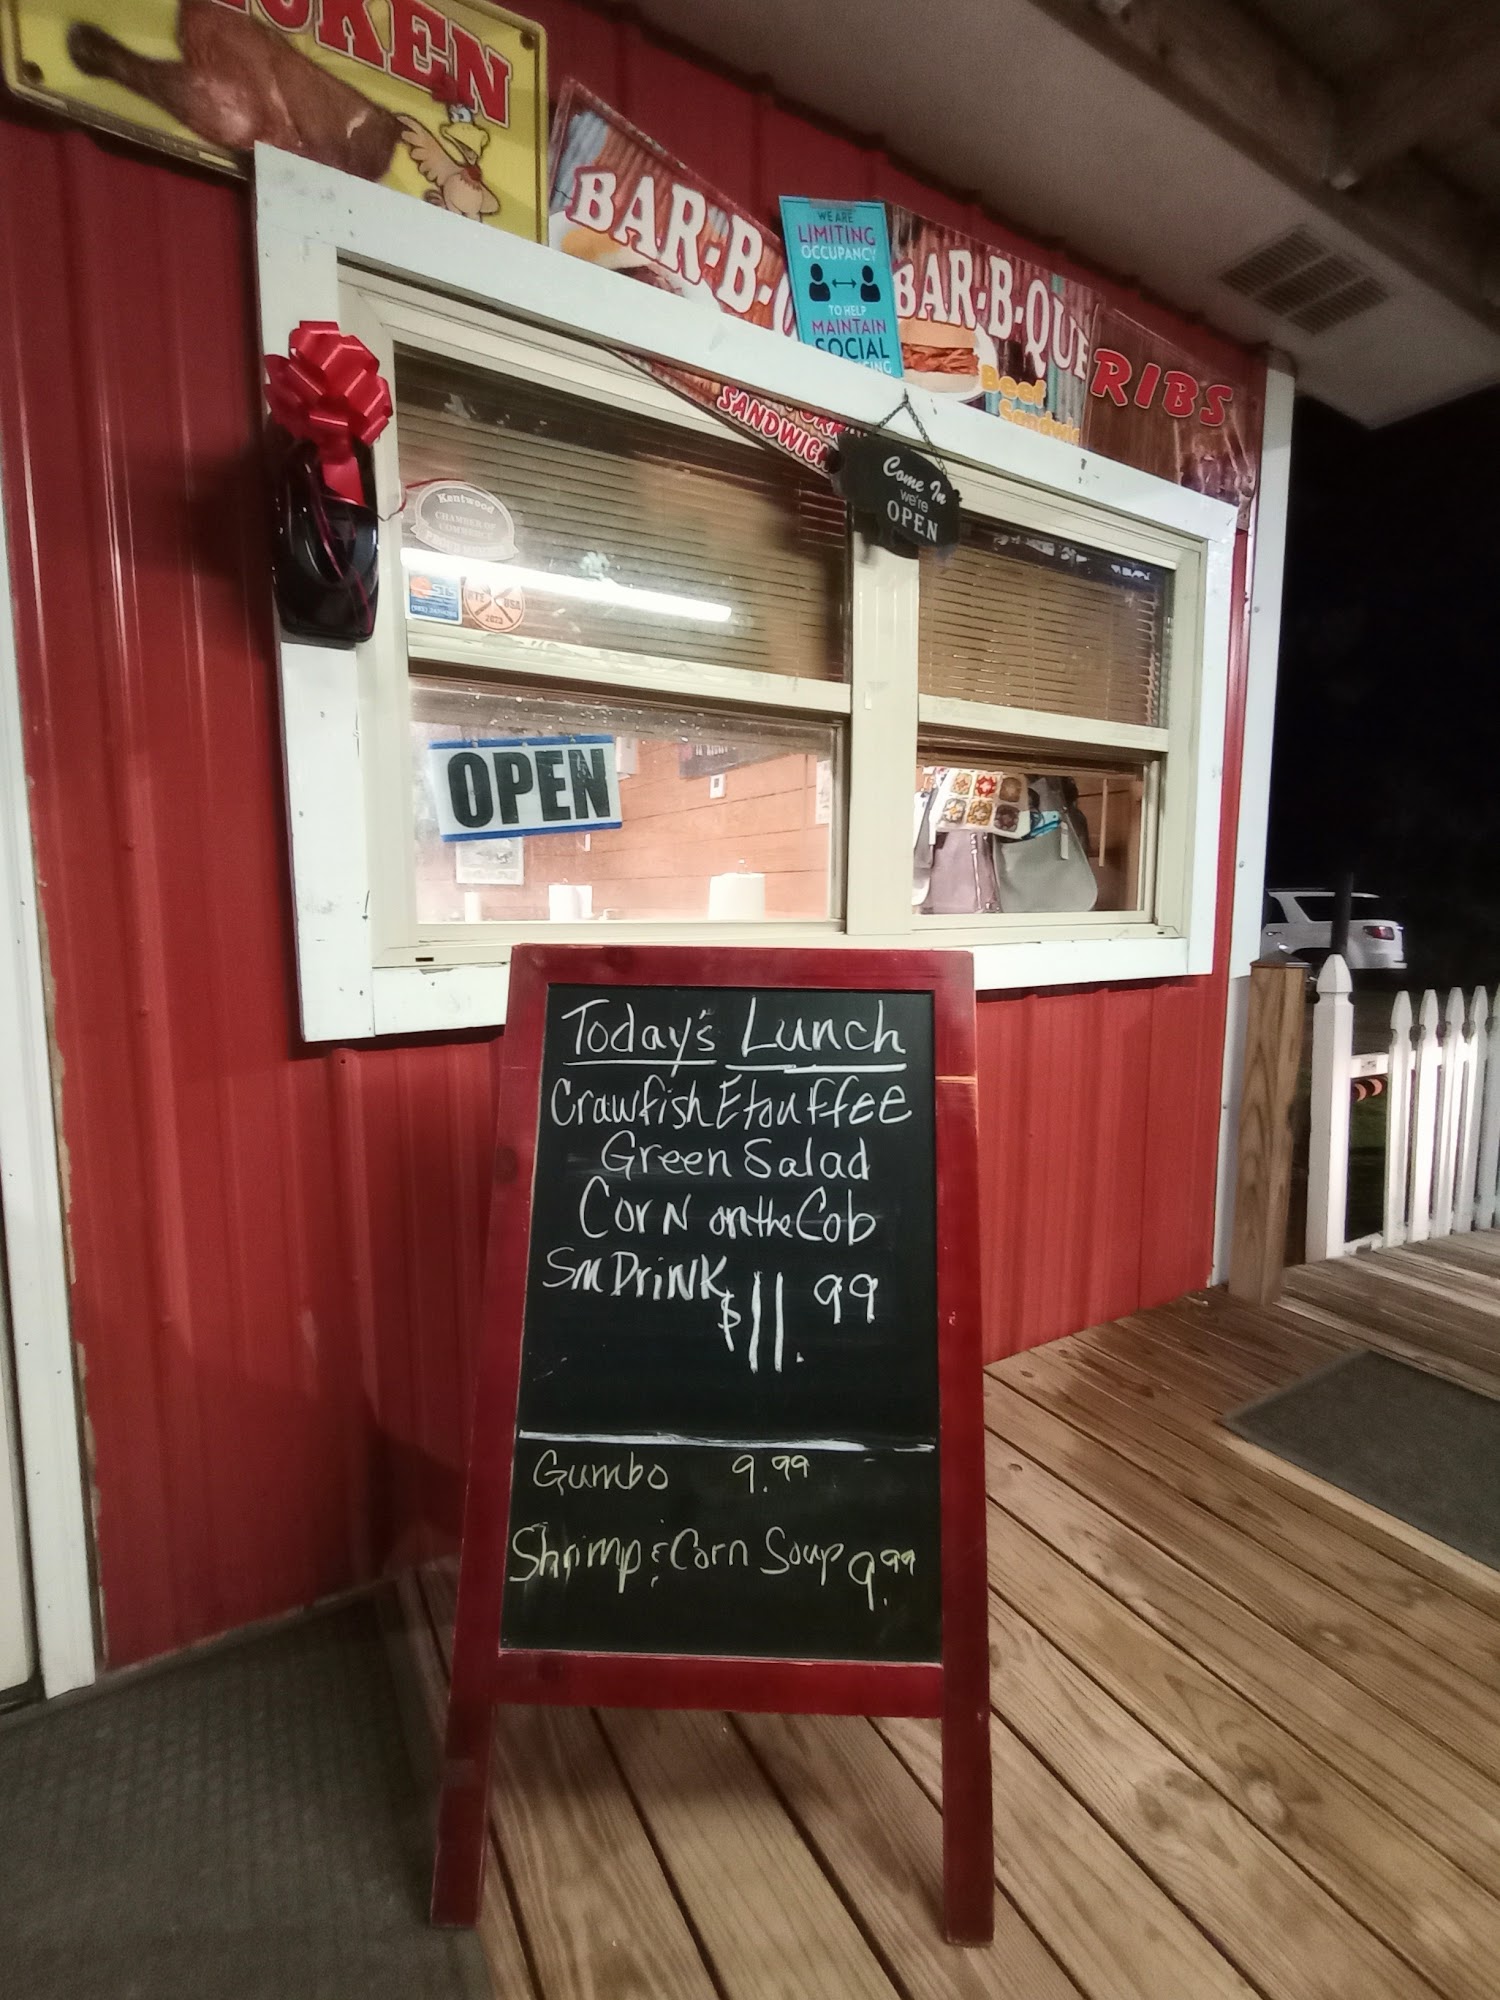 BAR-B-
SANDWICH
WE ARE
LIMITING
OCCUPANCY
TO HELP
MAINTAIN
SOCIAL
BAR-B-QUE
Beef
RIBS
Come In
we're
OPEN
Kentwood
CHAMBER OF
COMMERCE
OPEN
Today's Lunch
Crawfish Etouffee
Green Salad
Corn on the Cob
Sm Drink
$11.99
Gumbo 9.99
Shrimp & Corn Soup 9.99